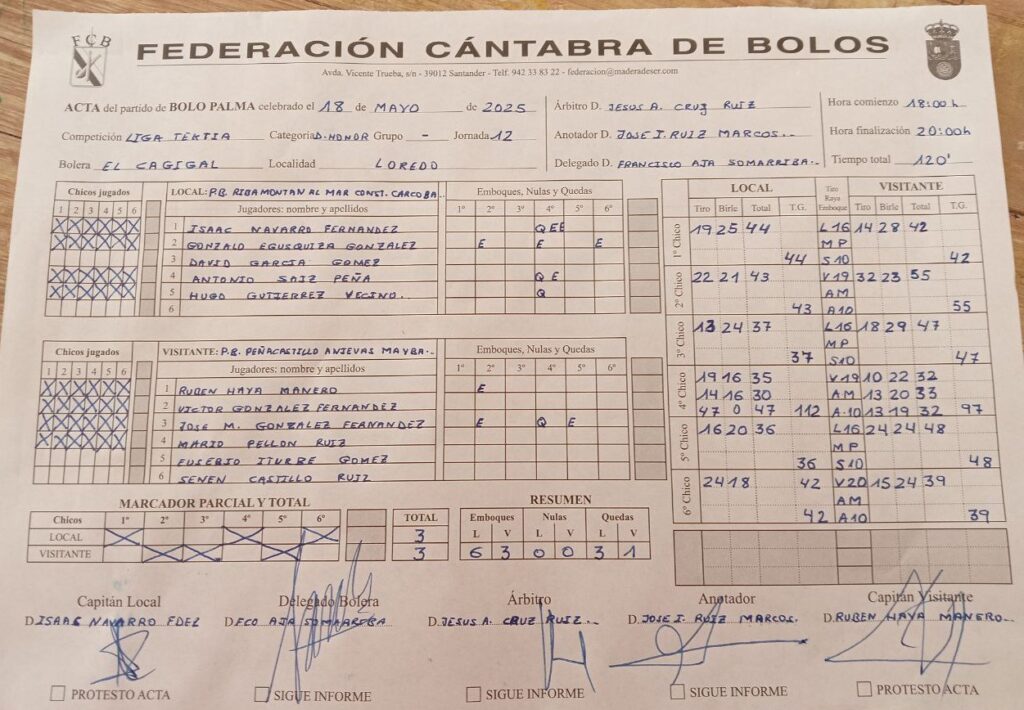 FCB
FEDERACIÓN CÁNTABRA DE BOLOS
Avda. Vicente Trueba, s/n - 39012 Santander - Telf. 942 33 83 22 - federacion@maderadeser.com
ACTA del partido de BOLO PALMA celebrado el 18 de MAYO de 2025
Competición LIGA TEKTIA Categoría D.HONOR Grupo - Jornada 12
Bolera EL CAGIGAL Localidad LOREDO
Árbitro D. JESUS A. CRUZ RUIZ
Anotador D. JOSE I. RUIZ MARCOS.
Delegado D. FRANCISCO AJA SOMARRIBA.
Hora comienzo 18:00 h
Hora finalización 20:00h
Tiempo total 120'
Chicos jugados LOCAL: P.B. RIBAMONTAN AL MAR CONST. CARCOBA Emboques, Nulas y Quedas
1 2 3 4 5 6 Jugadores: nombre y apellidos 1º 2º 3º 4º 5º 6º
X X X X X X 1 ISAAC NAVARRO FERNANDEZ QEE
X X X X X X 2 GONZALO EGUSQUIZA GONZALEZ E E E
3 DAVID GARCIA GOMEZ
X X X X X X 4 ANTONIO SAIZ PEÑA Q E
X X X X X X 5 HUGO GUTIERREZ VECINO. Q
6
Chicos jugados VISITANTE: P.B. PEÑACASTILLO ANIEVAS MAYBA. Emboques, Nulas y Quedas
1 2 3 4 5 6 Jugadores: nombre y apellidos 1º 2º 3º 4º 5º 6º
X X X X X X 1 RUBEN HAYA MANERO E
X X X X X X 2 VICTOR GONZALEZ FERNANDEZ
X X X X X X 3 JOSE M. GONZALEZ FERNANDEZ E Q E
X X X X X X 4 MARIO PELLON RUIZ
5 EUSEBIO ITURBE GOMEZ
6 SENEN CASTILLO RUIZ
LOCAL Tiro Raya Emboque VISITANTE
Tiro Birle Total T.G. Tiro Birle Total T.G.
1º Chico 19 25 44 L16 14 28 42
MP
44 S10 42
2º Chico 22 21 43 V19 32 23 55
AM
43 A10 55
3º Chico 13 24 37 L16 18 29 47
MP
37 S10 47
4º Chico 19 16 35 V19 10 22 32
14 16 30 AM 13 20 33
47 0 47 112 A-10 13 19 32 97
5º Chico 16 20 36 L16 24 24 48
MP
36 S10 48
6º Chico 24 18 42 V20 15 24 39
AM
42 A10 39
MARCADOR PARCIAL Y TOTAL
Chicos 1º 2º 3º 4º 5º 6º TOTAL
LOCAL X X X 3
VISITANTE X X X 3
RESUMEN
Emboques Nulas Quedas
L V L V L V
6 3 0 0 3 1
Capitán Local Delegado Bolera Árbitro Anotador Capitán Visitante
D. ISAAC NAVARRO FDEZ D. FCO AJA SOMARRIBA D. JESUS A. CRUZ RUIZ. D. JOSE I. RUIZ MARCOS. D. RUBEN HAYA MANERO.
PROTESTO ACTA SIGUE INFORME SIGUE INFORME SIGUE INFORME PROTESTO ACTA